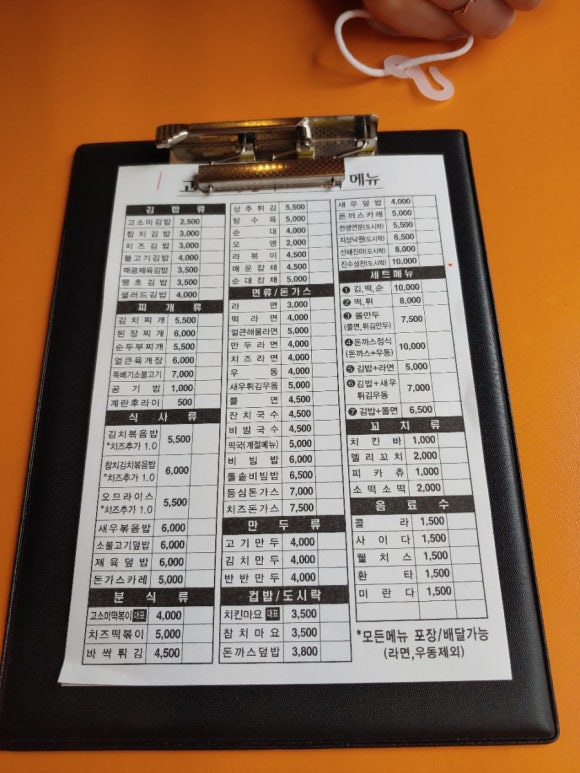 메뉴
김 밥 류
고소미김밥 2,500
참치김밥 3,000
치즈김밥 3,000
불고기김밥 4,000
매콤제육김밥 3,500
땡초김밥 3,500
샐러드김밥 4,000
찌 개 류
김치찌개 5,500
된장찌개 6,000
순두부찌개 5,500
얼큰육개장 6,000
뚝배기소불고기 7,000
공기밥 1,000
계란후라이 500
식 사 류
김치볶음밥 5,500
*치즈추가 1.0
참치김치볶음밥 6,000
*치즈추가 1.0
오므라이스 5,500
*치즈추가 1.0
새우볶음밥 6,000
소불고기덮밥 6,000
제육덮밥 6,000
돈가스카레 5,000
분 식 류
고소미떡볶이 대표 4,000
치즈떡볶이 5,000
바싹튀김 4,500
상추튀김 5,500
탕수육 5,000
순대 4,000
오뎅 2,000
라볶이 4,500
매운잡채 4,500
순대잡채 5,000
면류/돈가스
라면 3,000
떡라면 4,000
얼큰해물라면 5,000
만두라면 4,000
치즈라면 4,000
우동 4,000
새우튀김우동 5,000
쫄면 4,500
잔치국수 4,500
비빔국수 4,500
떡국(계절메뉴) 5,000
비빔밥 6,000
돌솥비빔밥 6,500
등심돈가스 7,000
치즈돈가스 7,500
만 두 류
고기만두 4,000
김치만두 4,000
반반만두 4,000
컵밥/도시락
치킨마요 대표 3,500
참치마요 3,500
돈까스덮밥 3,800
새우덮밥 4,000
돈까스카레 5,000
천생연분(도시락) 5,500
지상낙원(도시락) 6,500
산해진미(도시락) 8,000
진수성찬(도시락) 10,000
세트메뉴
❶ 김,떡,순 10,000
❷ 떡,튀 8,000
❸ 쫄만두 7,500
(쫄면,튀김만두)
❹ 돈까스정식 10,000
(돈까스+우동)
❺ 김밥+라면 5,000
❻ 김밥+새우 7,000
튀김우동
❼ 김밥+쫄면 6,500
꼬 치 류
치킨바 1,000
델리꼬치 2,000
피카츄 1,000
소떡소떡 2,000
음 료 수
콜라 1,500
사이다 1,500
웰치스 1,500
환타 1,500
미란다 1,500
*모든메뉴 포장/배달가능
(라면,우동제외)